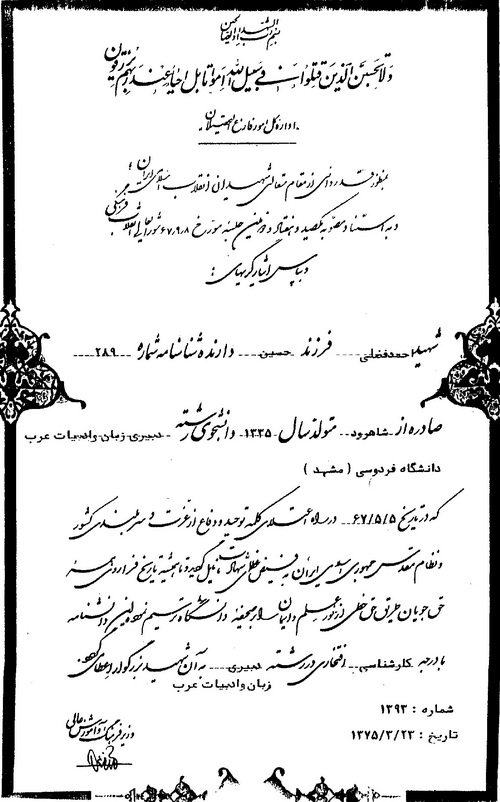 بسم رب الشهداء والصدیقین
ولاتحسبن الذین قتلوا فی سبیل الله امواتا بل احیاء عند ربهم یرزقون
اداره کل امور فارغ التحصیلان
بمنظور قدردانی از مقام متعالی شهیدان انقلاب اسلامی ایران
و به استناد مصوبه یکصد و هفتاد و جلسه مورخ ۶۷/۹/۸ شورای عالی انقلاب فرهنگی
و بپاس ایثارگریهای :
شهید احمد فضلی فرزند حسین دارنده شناسنامه شماره ۲۸۹
صادره از شاهرود متولد سال ۱۳۳۵ دانشجوی رشته دبیری زبان وادبیات عرب
دانشگاه فردوسی ( مشهد )
که در تاریخ ۶۷/۵/۵ در راه اعتلای کلمه توحید و دفاع از عزت و سربلندی کشور
و نظام مقدس جمهوری اسلامی ایران به فیض عظمای شهادت نایل گردید و تا همیشه تاریخ فرا روی همه
حق جویان طریق حق خطی از نور علم و ایمان بر صحیفه دانشگاه ترسیم نمود این دانشنامه
با درجه کارشناسی افتخاری در رشته دبیری به آن شهید بزرگوار اعطا می گردد.
زبان وادبیات عرب
شماره : ۱۳۹۳
تاریخ : ۱۳۷۵/۳/۲۳
وزیر فرهنگ و آموزش عالی